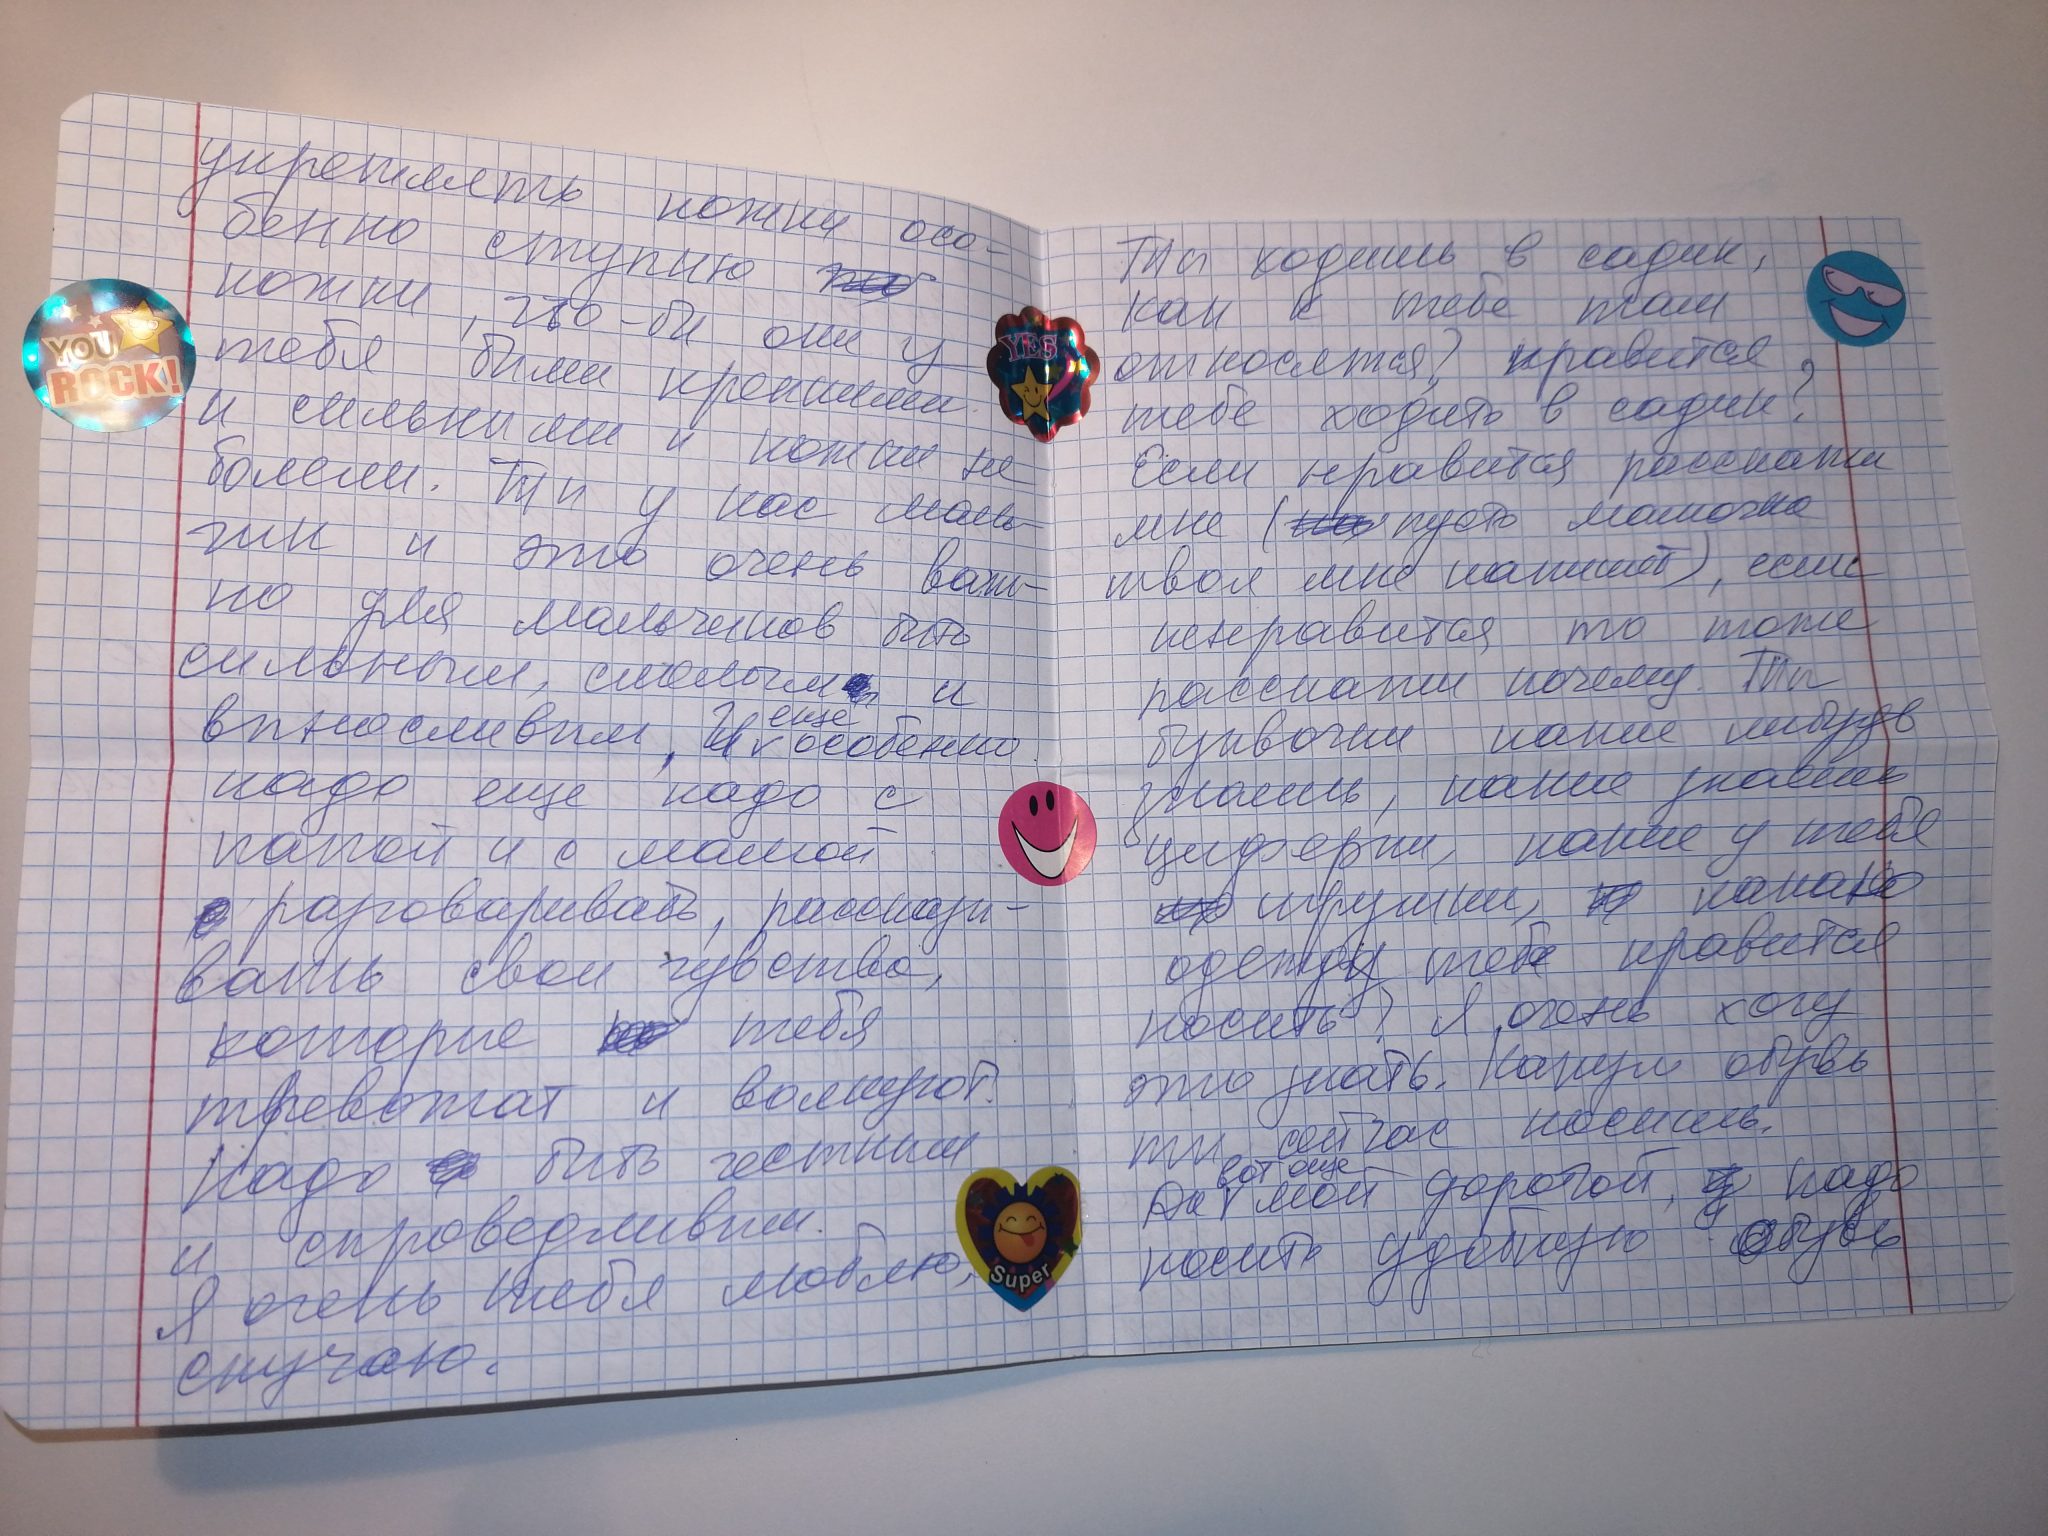 укреплять ножки осо-
бенно ступню
ножки, что-би они у
тебя били крепкими
и сильными и ножки не
болели. Ты у нас маль-
чик и это очень важ-
но для мальчиков быть
сильным, смелым и
выносливым, И еще особенно
надо еще надо с
папой и с мамой
разговаривать, рассказы-
вать свои чувства,
которые тебя
тревожат и волнуют.
Надо быть честным
и справедливым.
Я очень тебя люблю,
скучаю.
Ты ходишь в садик,
как к тебе там
относятся? нравится
тебе ходить в садик?
Если нравится расскажи
мне (пусть мамочка
твоя мне напишет), если
ненравится то тоже
расскажи почему. Ты
буквочки какие нибудь
знаешь, какие знаешь
циферки, какие у тебя
игрушки, какаю
одежду тебе нравится
носить? Я очень хочу
это знать. Какую обувь
ты сейчас носишь.
Да вот еще мой дорогой, надо
носить удобную обувь
YOU
ROCK!
YES
Super